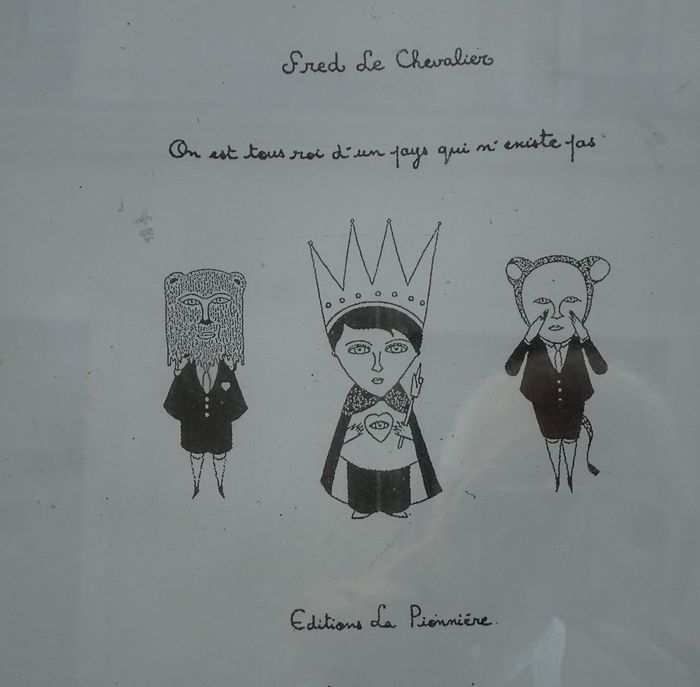 Fred Le Chevalier
On est tous roi d'un pays qui n'existe pas
Editions La Pionnière